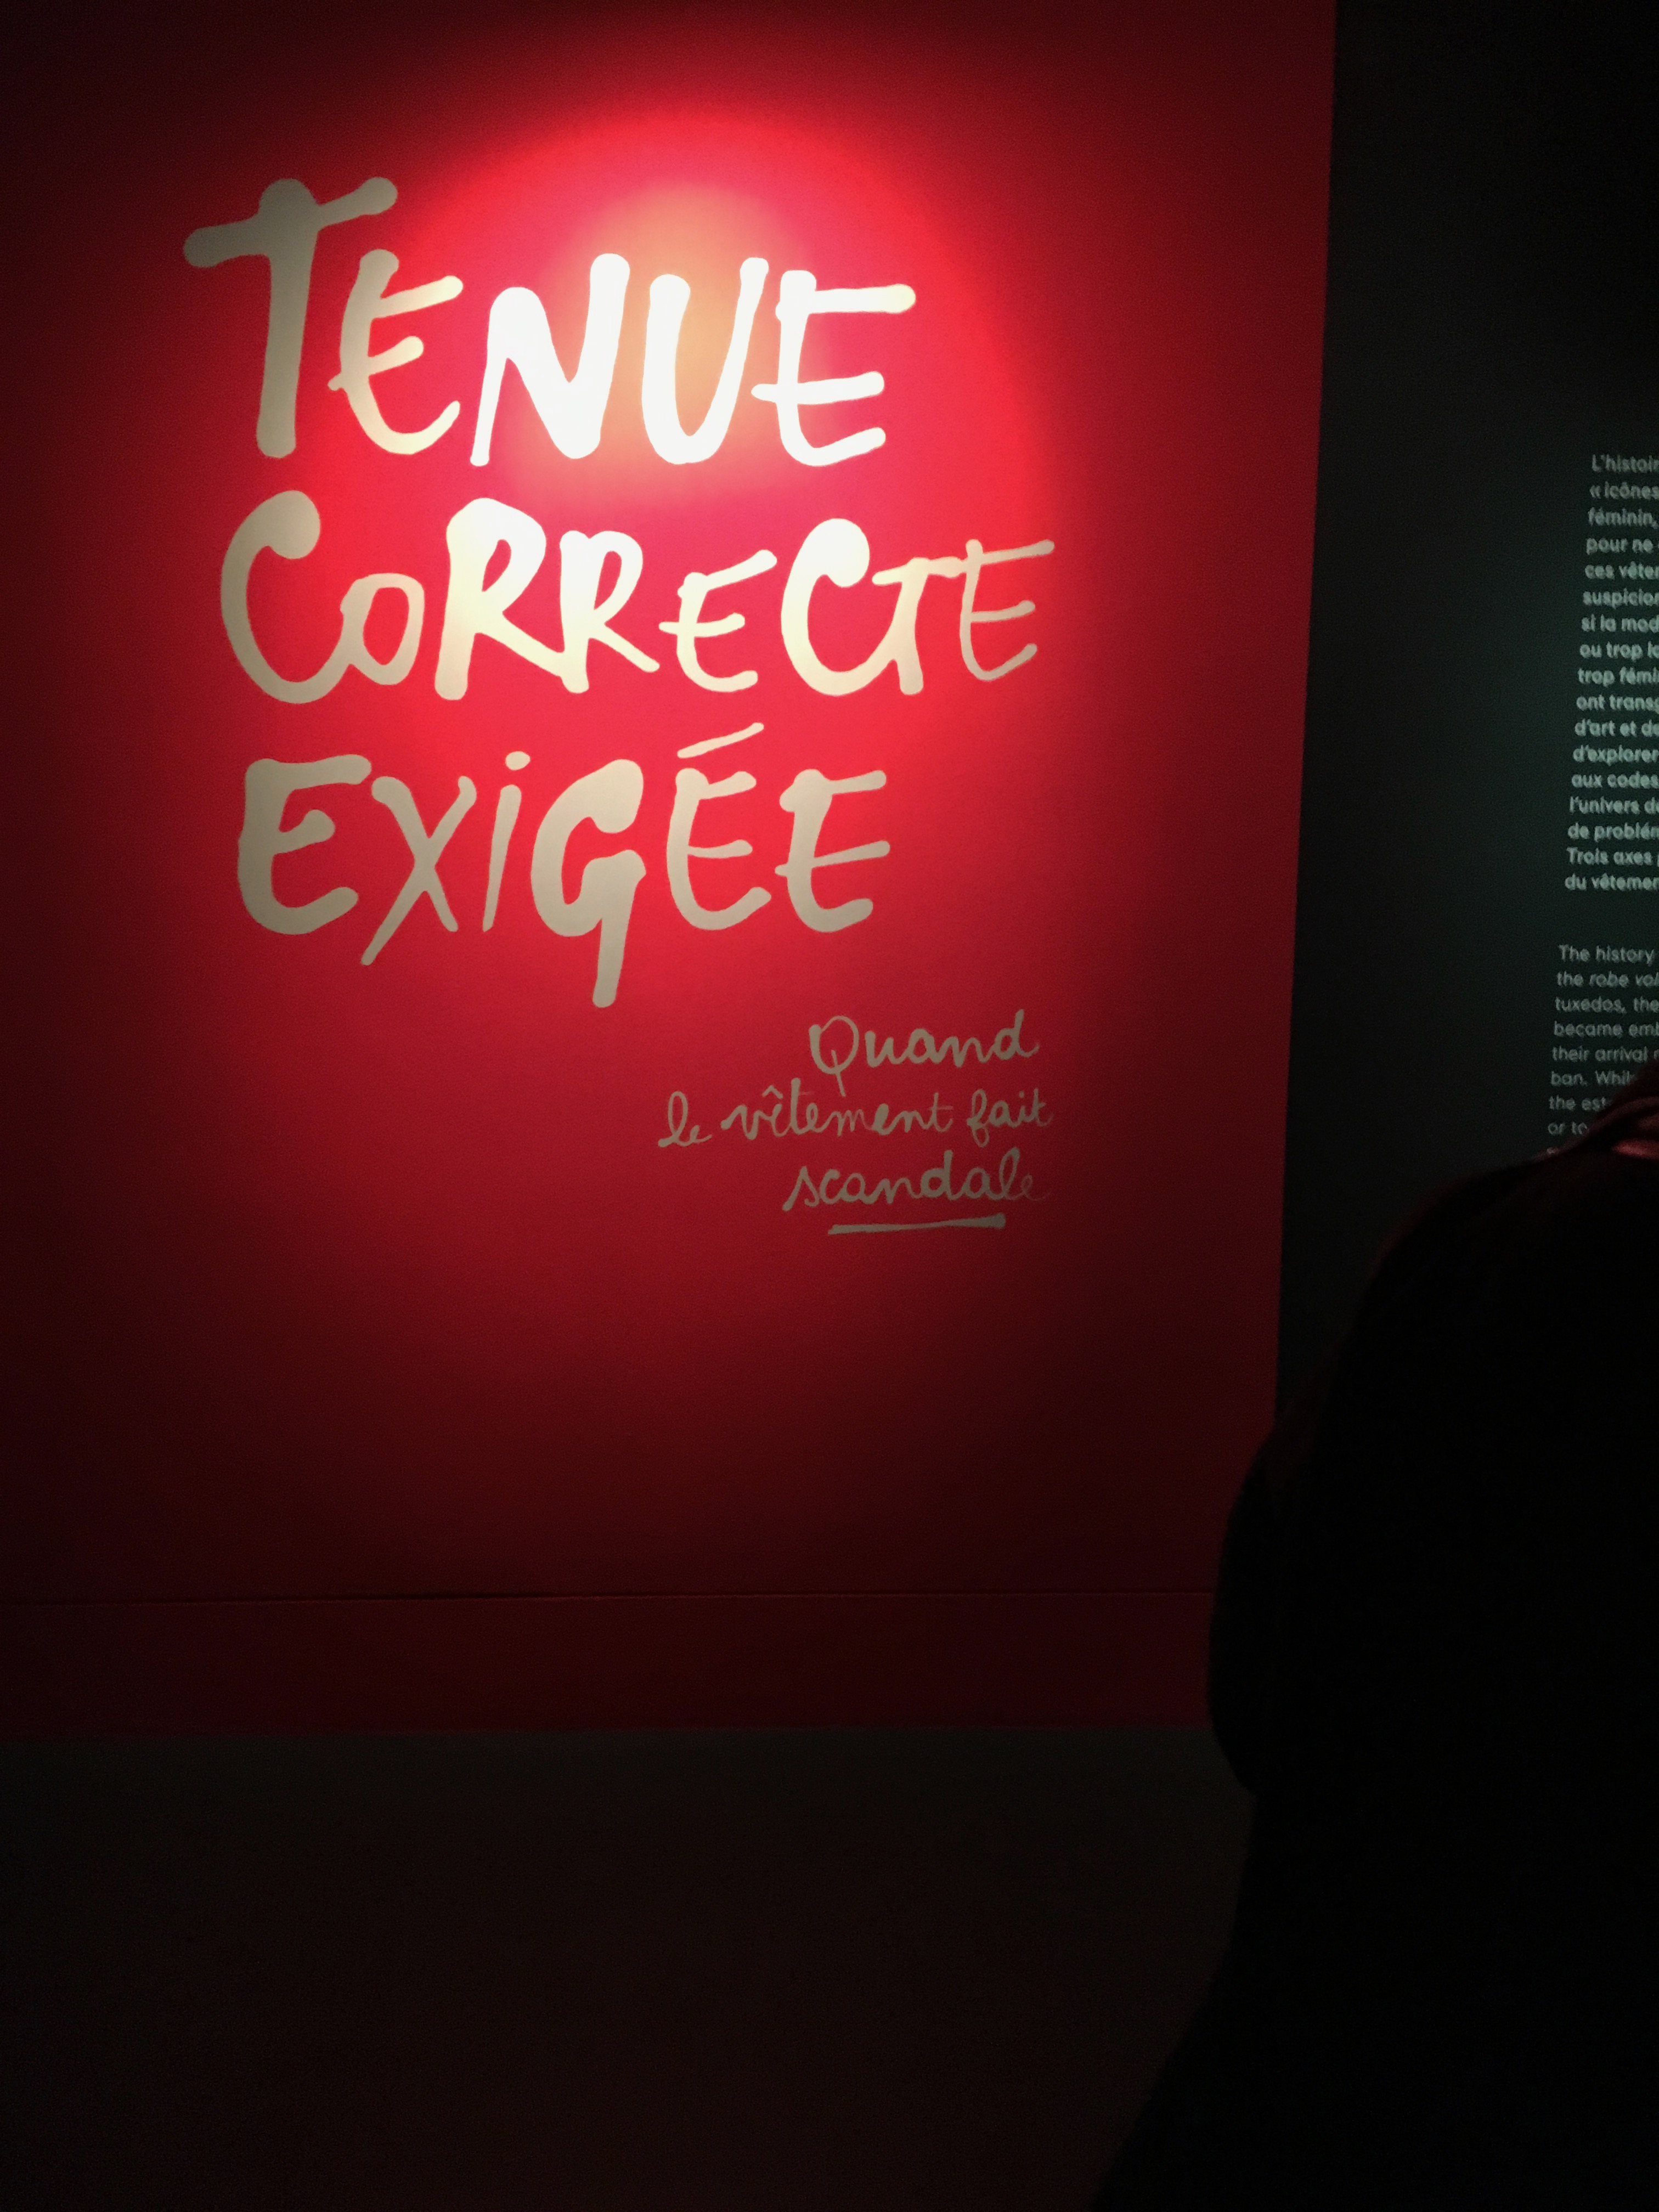 TENUE
CORRECTE
EXIGÉE
Quand
le vêtement fait
scandale
L'histoir
« icônes
féminin,
pour ne
ces vête
suspicion
si la mod
ou trop lo
trop fémi
ont transg
d'art et de
d'explorer
aux codes
l'univers de
de problém
Trois axes
du vêtemen
The history
the robe vol
tuxedos, the
became emb
their arrival
ban. Whil
the est
or to